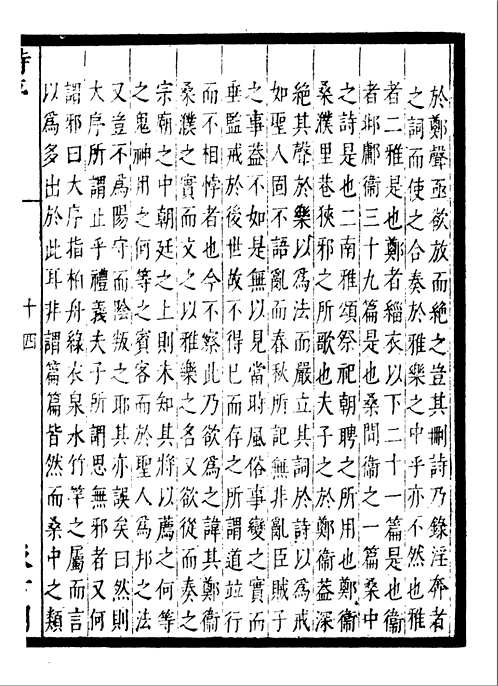 於鄭聲亟欲放而絶之豈其刪詩乃錄淫奔者
之詞而使之合奏於雅樂之中乎亦不然也雅
者二雅是也鄭者緇衣以下二十一篇是也衞
者邶鄘衞三十九篇是也桑間衞之一篇桑中
之詩是也二南雅頌祭祀朝聘之所用也鄭衞
桑濮里巷狹邪之所歌也夫子之於鄭衞葢深
絶其聲於樂以爲法而嚴立其詞於詩以爲戒
如聖人固不語亂而春秋所記無非亂臣賊子
之事葢不如是無以見當時風俗事變之實而
垂監戒於後世故不得已而存之所謂道竝行
而不相悖者也今不察此乃欲爲之諱其鄭衞
桑濮之實而文之以雅樂之名又欲從而奏之
宗廟之中朝廷之上則未知其將以薦之何等
之鬼神用之何等之賓客而於聖人爲邦之法
又豈不爲陽守而陰叛之耶其亦誤矣曰然則
大序所謂止乎禮義夫子所謂思無邪者又何
謂邪曰大序指柏舟綠衣泉水竹竿之屬而言
以爲多出於此耳非謂篇篇皆然而桑中之類
十四